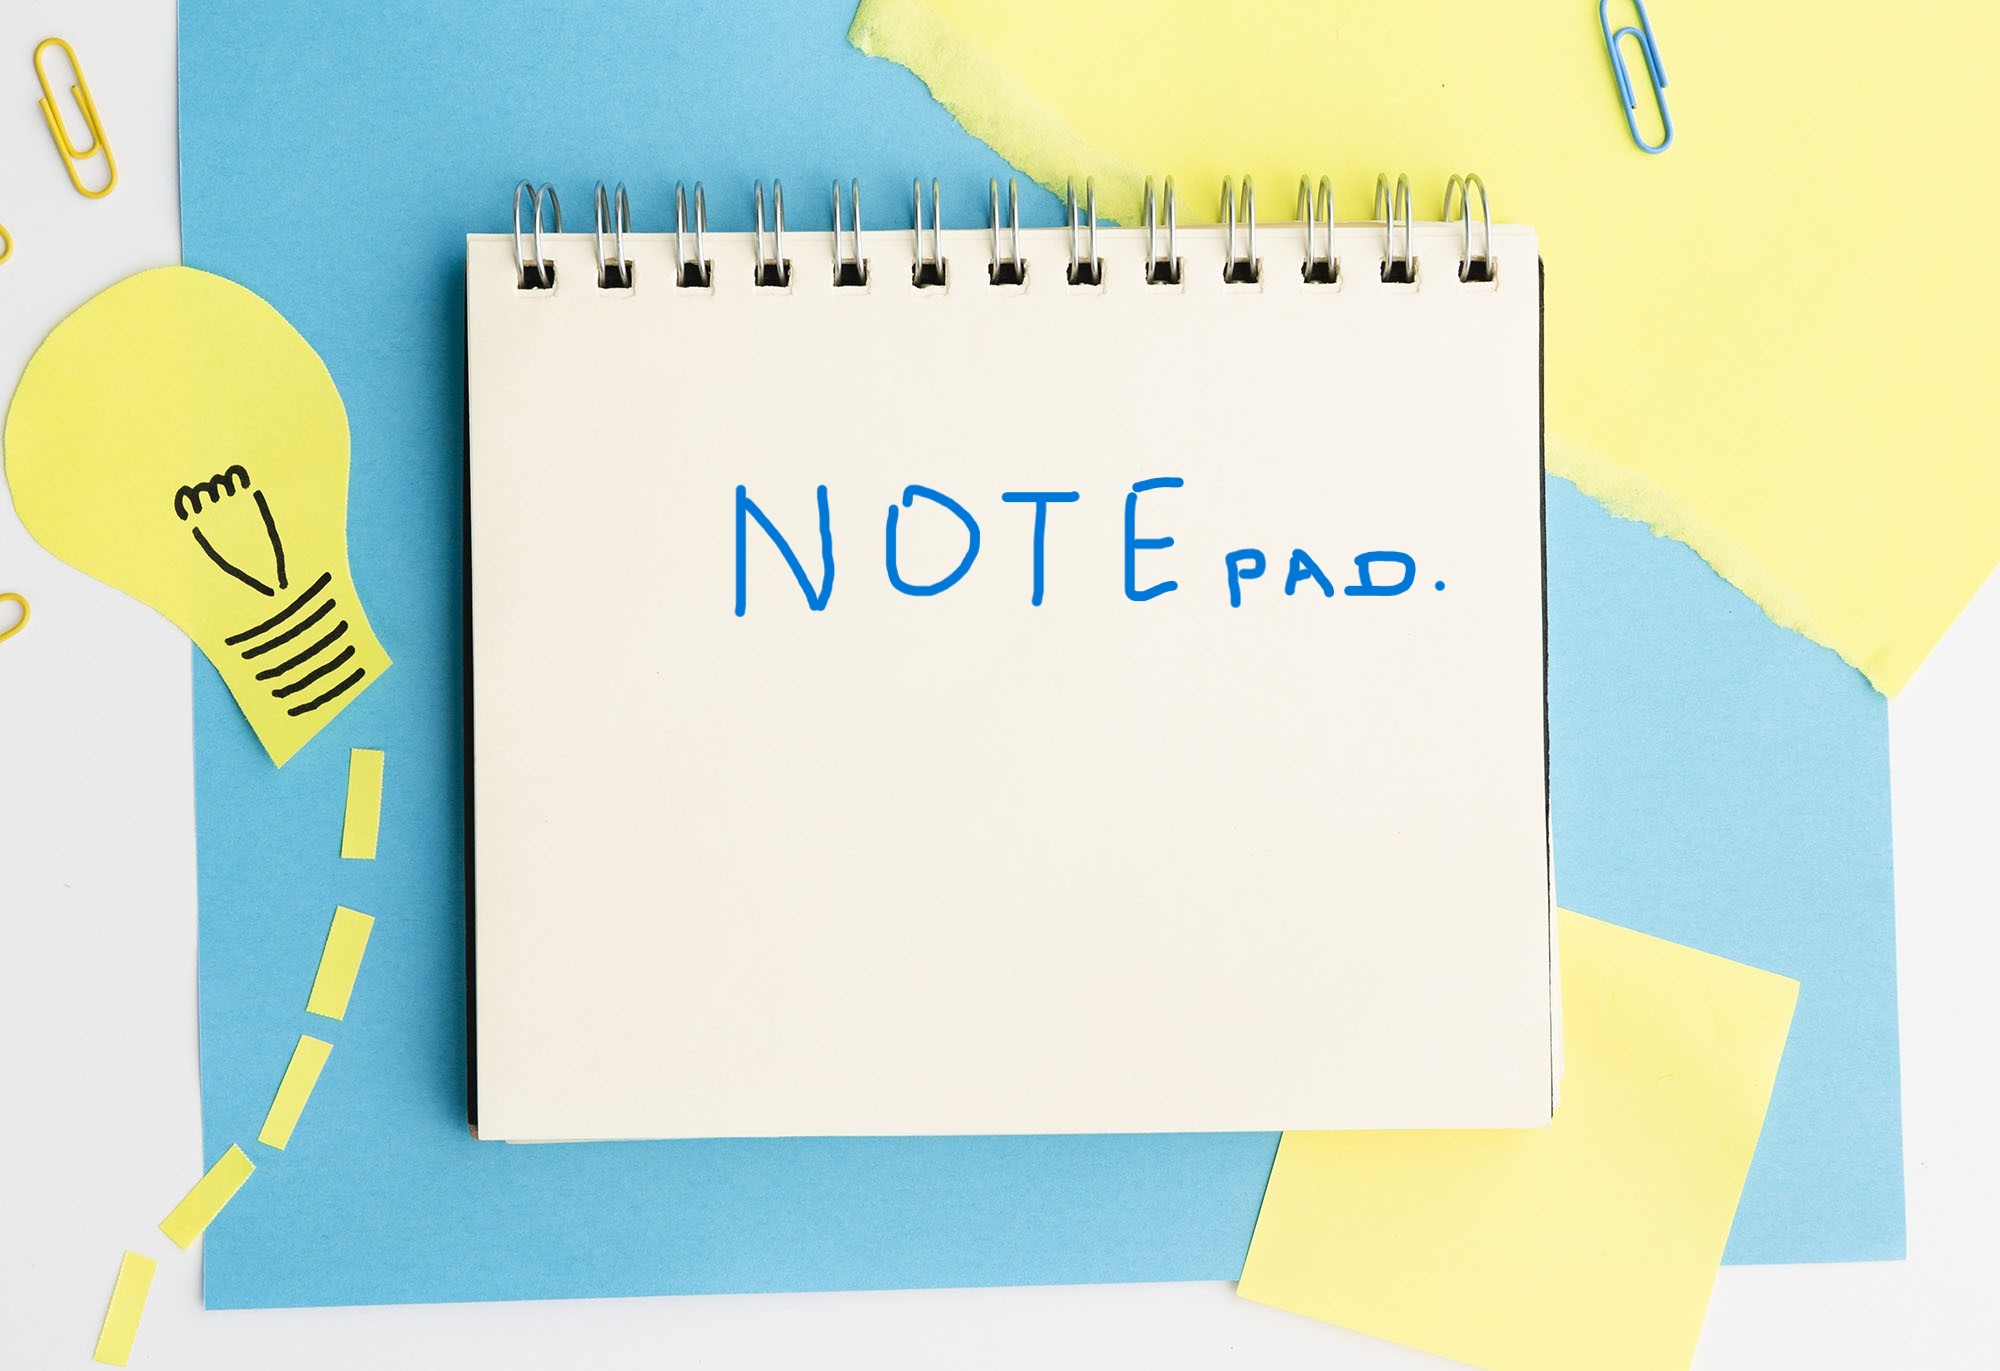 NOTE PAD.